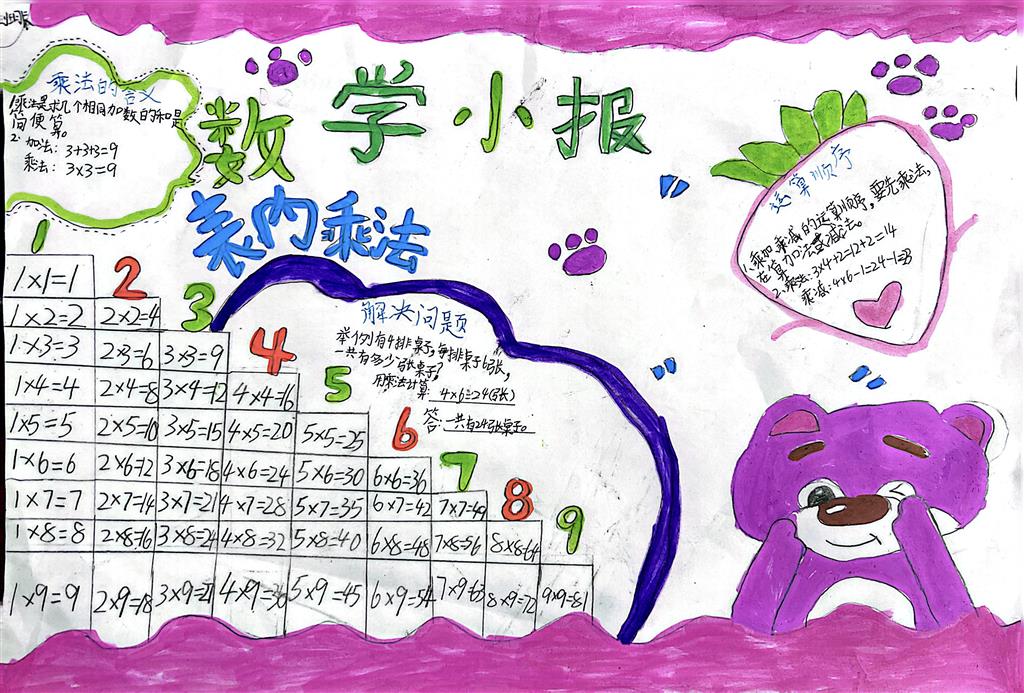 数学小报
表内乘法
乘法的含义
1.乘法是求几个相同加数的和是
简便算。
2.加法：3+3+3=9
乘法：3×3=9
运算顺序
1.乘加乘减的运算顺序，要先乘法，
在算加法或减法。
2.乘法：3×4+2=12+2=14
乘减：4×6-1=24-1=23
解决问题
举例有4排桌子，每排桌子6张，
一共有多少张桌子？
用乘法计算：4×6=24(张)
答：一共有24张桌子。
1
1×1=1 2
1×2=2 2×2=4 3
1×3=3 2×3=6 3×3=9 4
1×4=4 2×4=8 3×4=12 4×4=16 5
1×5=5 2×5=10 3×5=15 4×5=20 5×5=25 6
1×6=6 2×6=12 3×6=18 4×6=24 5×6=30 6×6=36 7
1×7=7 2×7=14 3×7=21 4×7=28 5×7=35 6×7=42 7×7=49 8
1×8=8 2×8=16 3×8=24 4×8=32 5×8=40 6×8=48 7×8=56 8×8=64 9
1×9=9 2×9=18 3×9=27 4×9=36 5×9=45 6×9=54 7×9=63 8×9=72 9×9=81